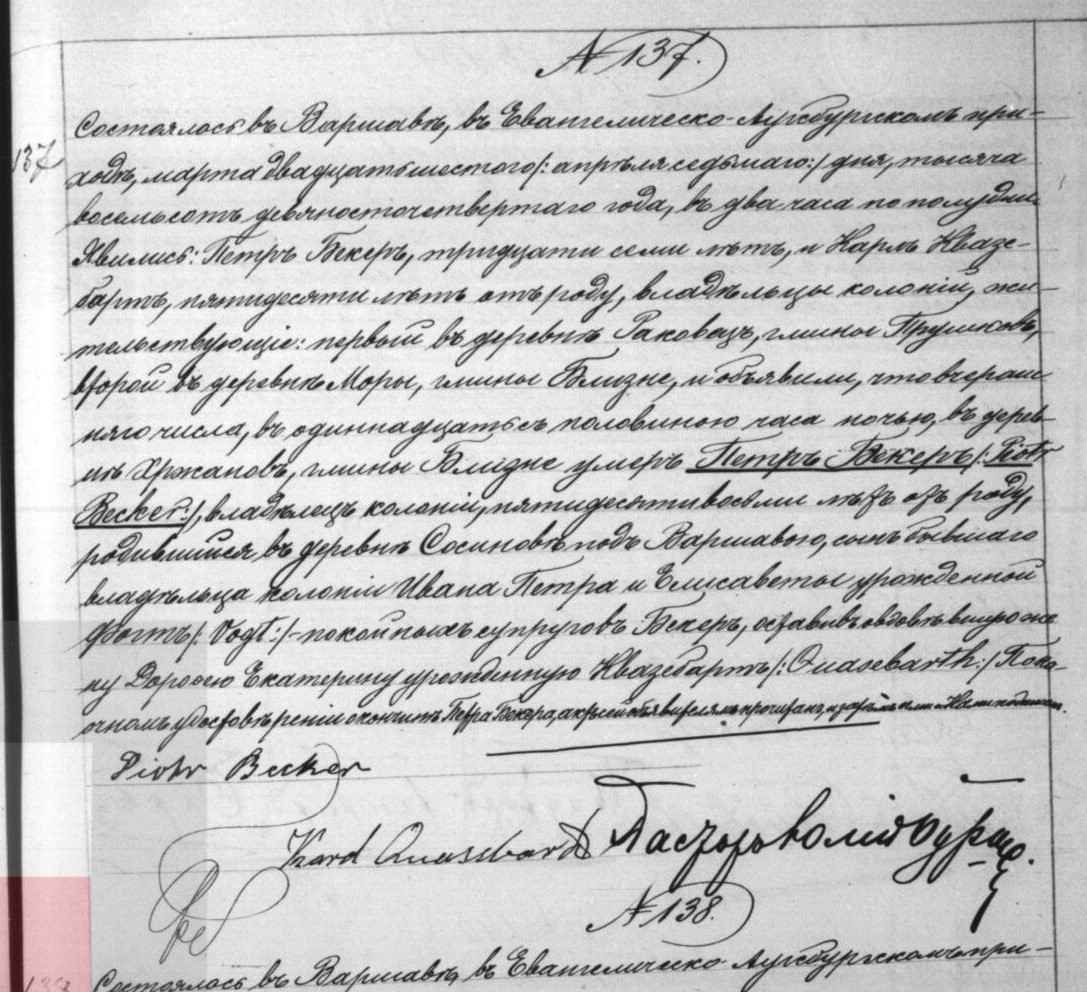 № 137.
Состоялось въ Варшавѣ, въ Евангелическо-Аугсбургскомъ при-
137
ходѣ, марта двадцать шестого /: апрѣля седьмаго :/ дня, тысяча
восемьсотъ девяносто четвертаго года, въ два часа по полудни.
Явились: Петръ Бекеръ, тридцати семи лѣтъ, и Карлъ Квазе-
бартъ, пятидесяти лѣтъ отъ роду, владѣльцы колоній, жи-
тельствующіе: первый въ деревнѣ Раковецъ, гмины Прушковъ,
второй въ деревнѣ Моры, гмины Близне, и объявили, что вчераш-
няго числа, въ одиннадцать съ половиною часа ночью, въ дерев-
нѣ Хржановъ, гмины Близне умеръ Петръ Бекеръ /: Piotr
Becker :/, владѣлецъ колоніи, пятидесяти восьми лѣтъ отъ роду,
родившійся въ деревнѣ Сосиновкѣ подъ Варшавою, сынъ бывшаго
владѣльца колоніи Ивана Петра и Елисаветы урожденной
Фогтъ /: Vogt :/ - покойныхъ супруговъ Бекеръ, оставивъ овдовѣвшую же
ну Доротею Екатерину урожденную Квазебартъ /: Quasebarth :/ По на-
очномъ удостовѣреніи о кончинѣ Петра Бекера, актъ сей объявителямъ прочитанъ, и затѣмъ ими и Нами подписанъ.
Piotr Becker
Karol Quasebarth Пасторъ
№ 138.
138 Состоялось въ Варшавѣ, въ Евангелическо Аугсбургскомъ при-